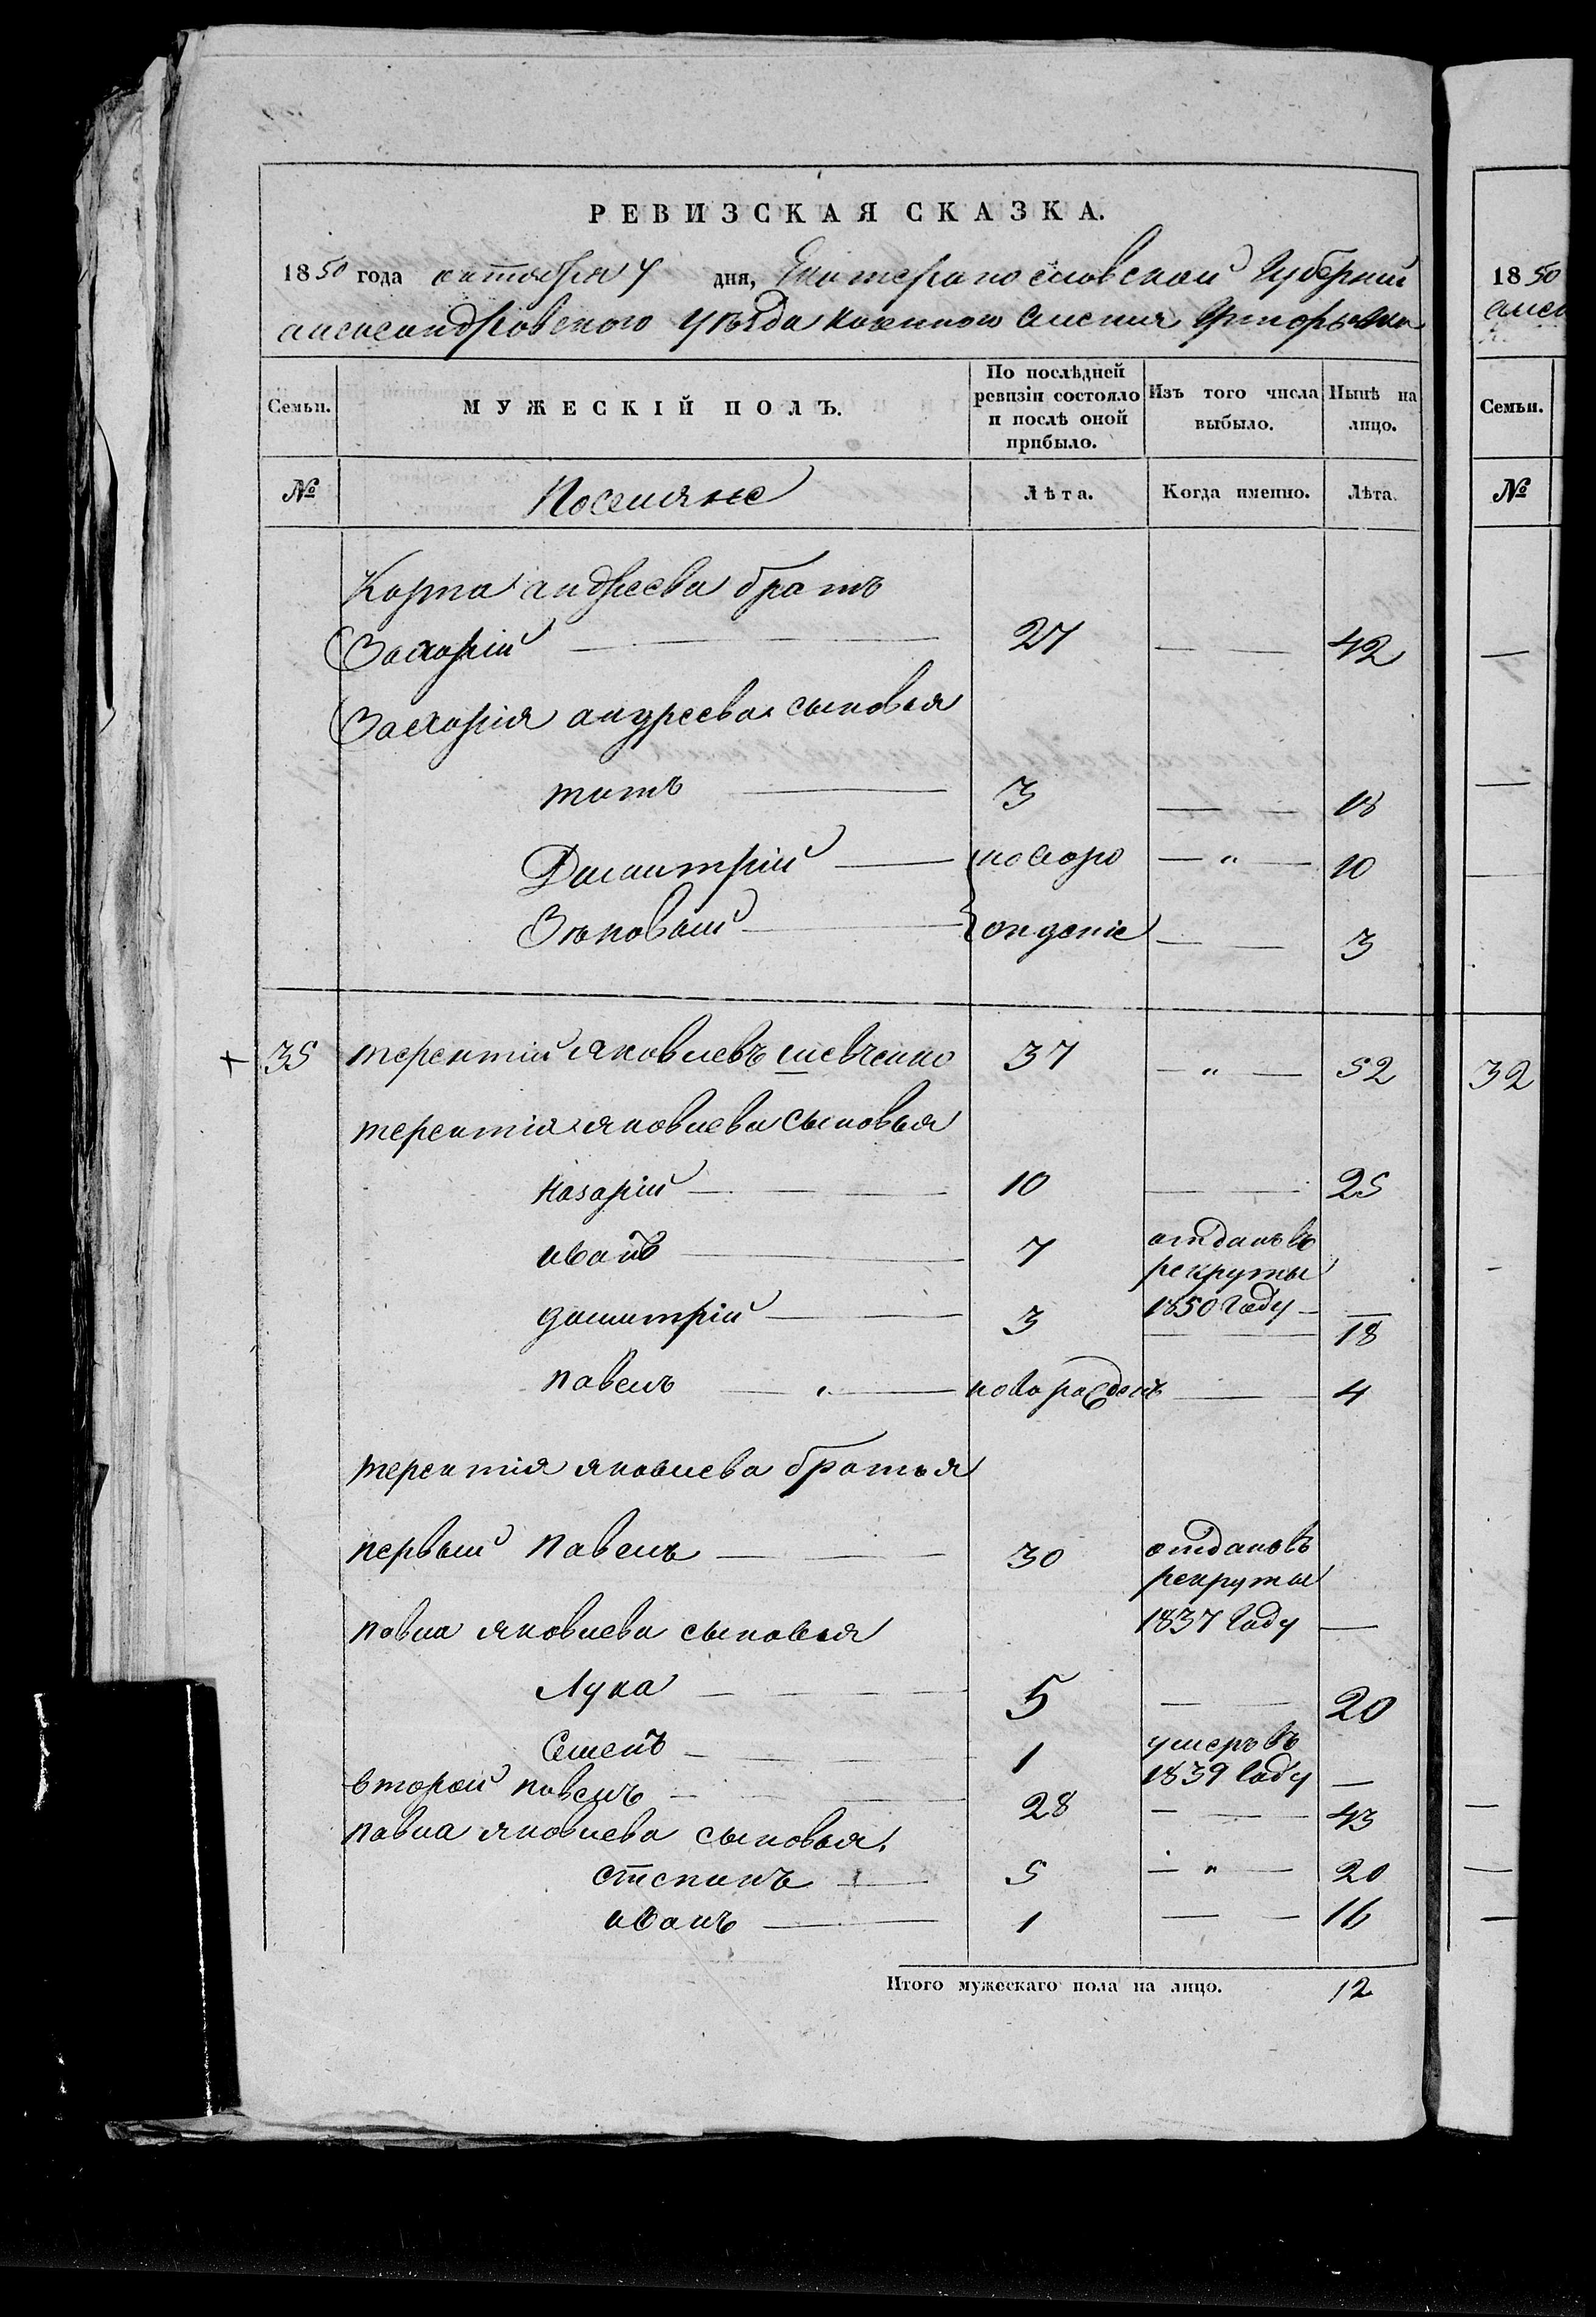 РЕВИЗСКАЯ СКАЗКА.
1850 года октября 7 дня, Екатеринославской Губернии
александровского уѣзда казенного селения Григорьевки
Семьи.
МУЖЕСКІЙ ПОЛЪ.
По послѣдней ревизіи состояло и послѣ оной прибыло.
Изъ того числа выбыло.
Нынѣ на лицо.
№
Поселяне
Лѣта.
Когда именно.
Лѣта.
Карпа андреева братъ
Захарій 27 — — 42
Захарія андреева сыновья
3 — — 18
Димитрій новоро — " — 10
ждение — — 3
35 терентій яковлевъ шевченко 37 — " — 52
терентія яковлева сыновья
назарій 10 — — 25
иванъ 7 отданъ въ
рекруты
1850 году —
димитрій 3 — — 18
павелъ новорожденъ — 4
терентія яковлева братья
первый павелъ 30 отданъ въ
рекруты
павла яковлева сыновья 1837 году —
Лука 5 — — 20
Семенъ 1 умеръ въ
1839 году —
второй павелъ 28 — — 43
павла яковлева сыновья
степанъ 5 — " — 20
иванъ 1 — — 16
Итого мужескаго пола на лицо. 12
1850
Семьи.
№
32